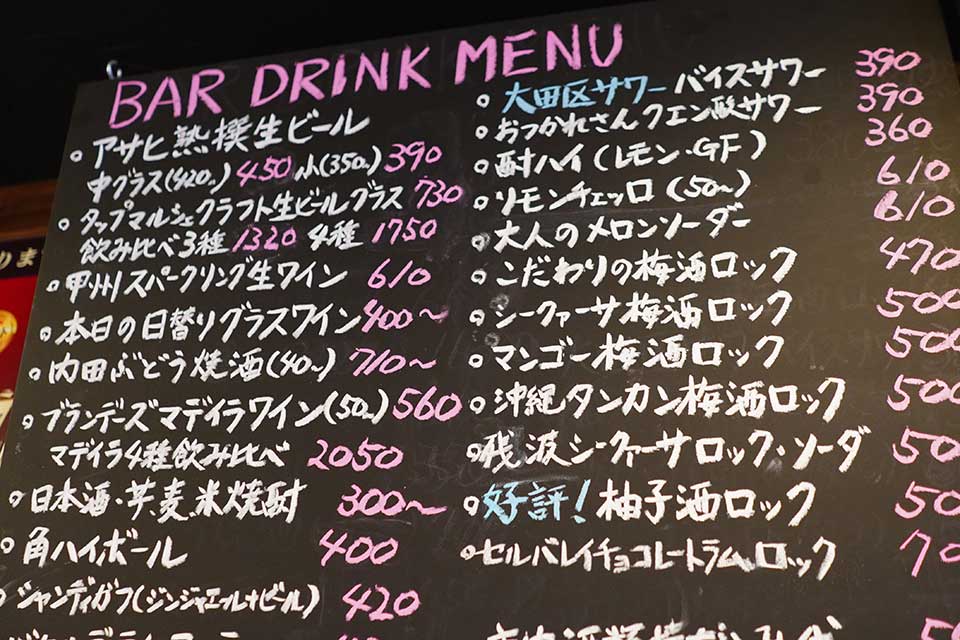 BAR DRINK MENU
。アサヒ熟撰生ビール
中グラス(420㎖) 450 小(350㎖) 390
。タップマルシェクラフト生ビールグラス 730
飲み比べ3種 1320 4種 1750
。甲州スパークリング生ワイン 610
。本日の日替りグラスワイン 400〜
。内田ぶどう焼酒(40㎖) 710〜
。ブランデーズマデイラワイン(50㎖) 560
マデイラ4種飲み比べ 2050
。日本酒・芋、麦、米焼酎 300〜
。角ハイボール 400
。シャンディガフ(ジンジャエール+ビール) 420
。大田区サワー バイスサワー 390
。おつかれさんクエン酸サワー 390
。酎ハイ(レモン・GF) 360
。リモンチェッロ(50㎖) 610
。大人のメロンソーダー 610
。こだわりの梅酒ロック 470
。シークァーサ梅酒ロック 500
。マンゴー梅酒ロック 500
。沖縄タンカン梅酒ロック 500
。残波シークァーサロック・ソーダ 50
。好評!柚子酒ロック 50
。セルバレイチョコレートラムロック 70
りま